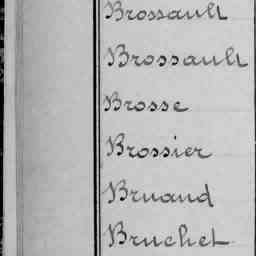 Brossault
Brossault
Brosse
Brossier
Bruand
Bruchet